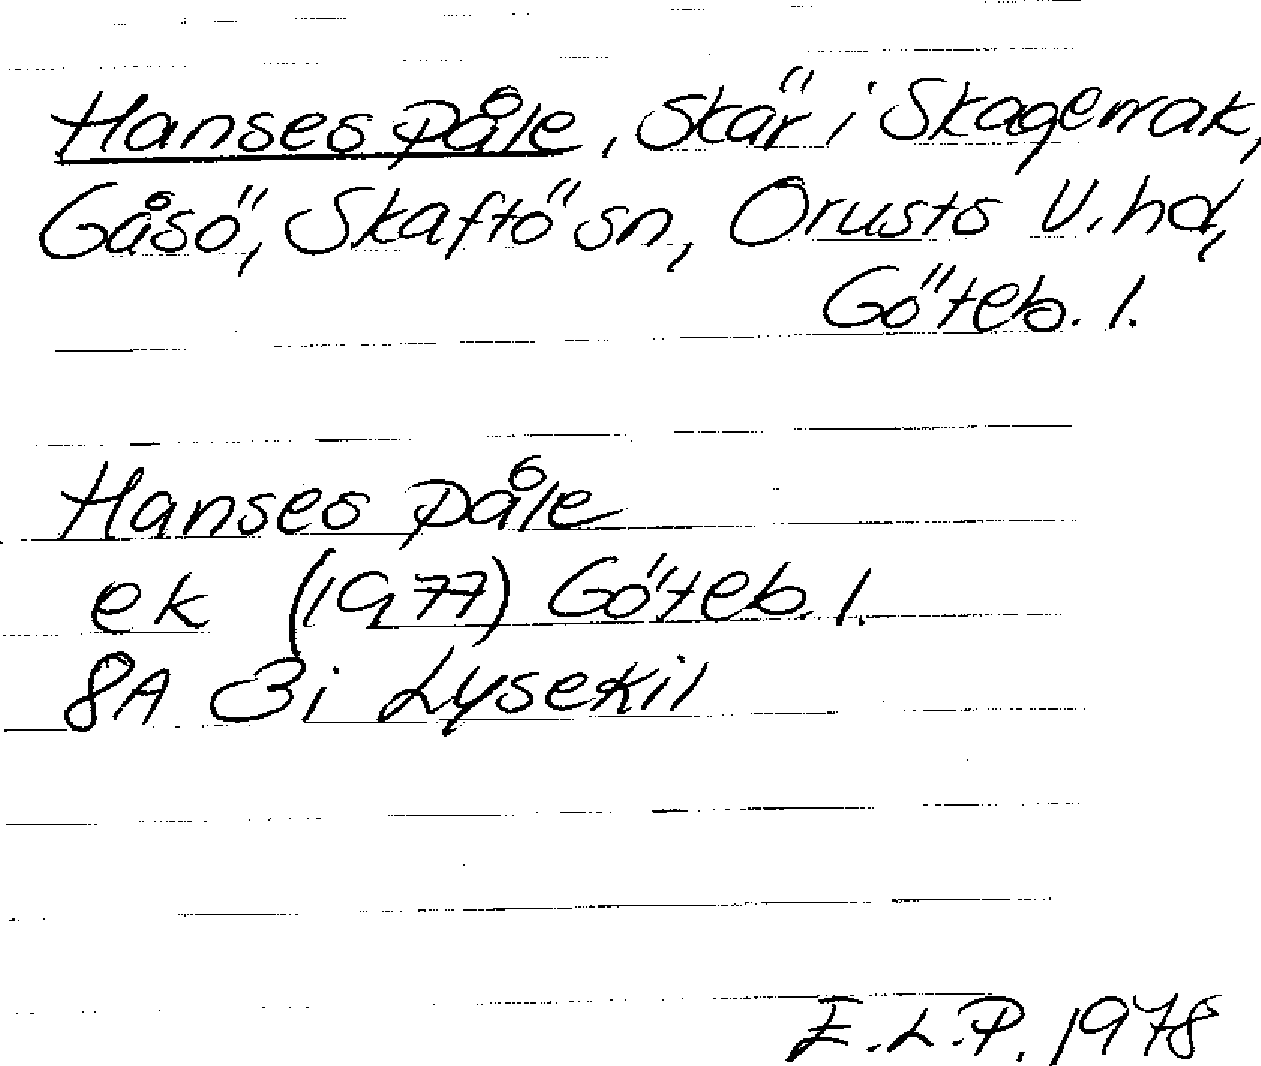 Hanses påle, Skär i Skagerrak,
Gåsö, Skaftö sn, Orusts V. hd,
Göteb. l.
Hanses påle
ek (1977) Göteb. l.
8A 3i Lysekil
E.L.P. 1978